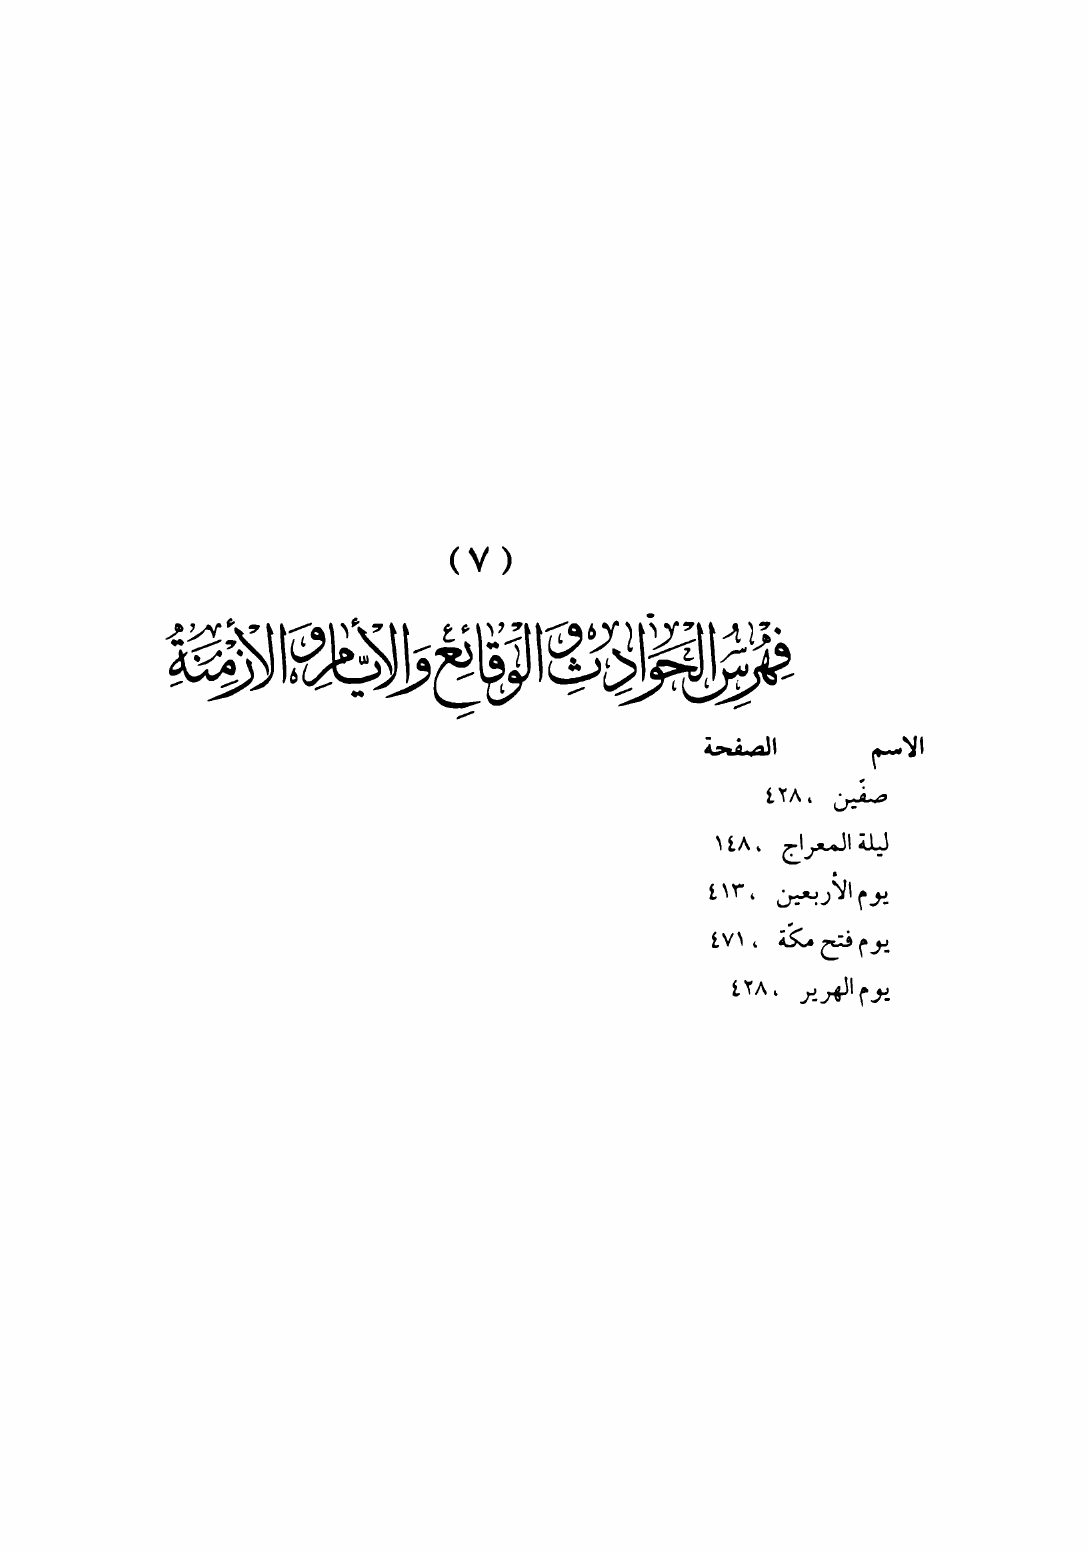 ( ٧ )
فهرس الحوادث والوقائع والأيام والأزمنة
الاسم الصفحة
صفّين ، ٤٢٨
ليلة المعراج ، ١٤٨
يوم الأربعين ، ٤١٣
يوم فتح مكّة ، ٤٧١
يوم الهرير ، ٤٢٨